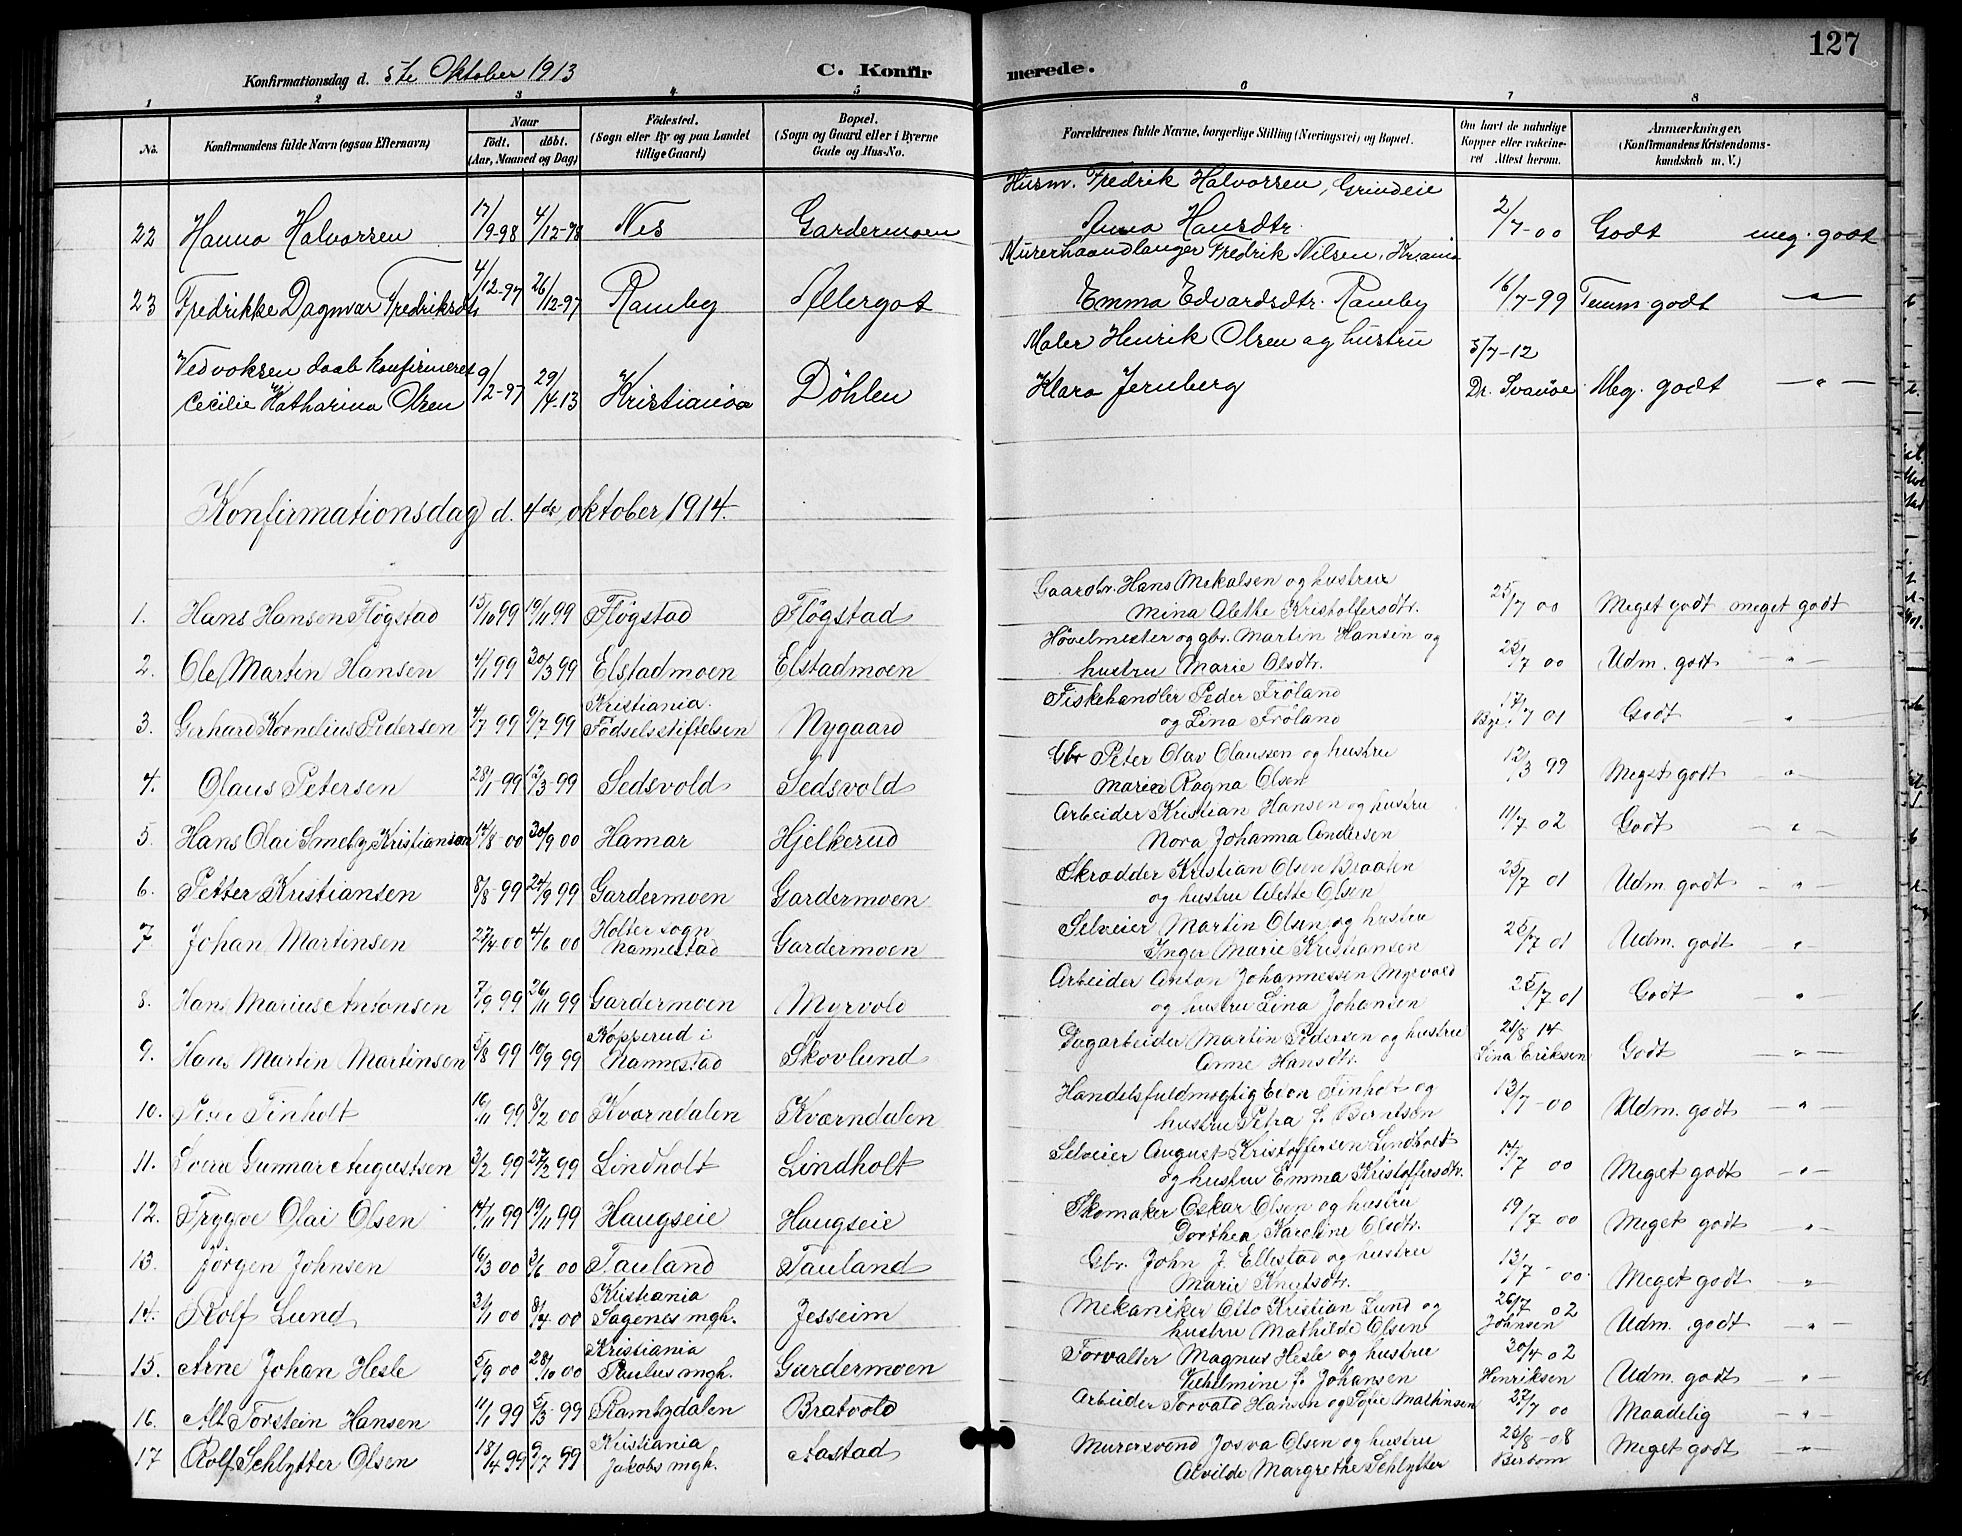 127
Konfirmationsdag d. 5te Oktober 1913 C. Konfirmerede.
1 2 3 4 5 6 7 8
No. Konfirmandens fulde Navn (ogsaa Efternavn) Naar født. døbt. (Aar, Maaned og Dag) Fødested. (Sogn eller By og paa Landet tillige Gaard) Bopæl. (Sogn og Gaard eller i Byerne Gade og Hus-No. Forældrenes fulde Navne, borgerlige Stilling (Næringsvei) og Bopæl. Om havt de naturlige Kopper eller vakcineret Attest herom. Anmærkninger. (Konfirmandens Kristendomskundskab m. V.)
Husm. Fredrik Halvorsen, Grindeie
22 Hanna Halvorsen 17/9-98 4/12-98 Nes Gardermoen Anna Hansdtr. 2/7-00 Godt meg. godt
Murerhaandlanger Fredrik Nilsen, Kr.ania
23 Fredrikke Dagmar Fredriksdtr 4/12-97 26/12-97 Ramby Allergot Emma Edvardsdtr. Ramby 16/7-99 Temm. godt — " —
Ved voksen daab konfirmeret Maler Henrik Olsen og hustru 5/7-12
Cecilie Katharina Olsen 9/2-97 29/4-13 Kristiania Döhlen Klara Jernberg Dr. Svavöe Meg. godt — " —
Konfirmationsdag d. 4de oktober 1914.
Gaardbr. Hans Mikalsen og hustru
1. Hans Hansen Flögstad 15/10 99 19/11 99 Flögstad Flögstad Mina Alette Kristoffersdtr. 25/7 00 Meget godt meget godt
Hövelmester og gbr. Martin Hansen og
2. Ole Martin Hansen 4/1 99 30/3 99 Elstadmoen Elstadmoen hustru Marie Olsdtr. 25/7 00 Udm. godt — " —
Kristiania. Fiskehandler Peder Fröland
3. Gerhard Kornelius Pedersen 4/7 99 9/7 99 Födselsstiftelsen Nygaard og Lina Fröland 17/7 01 Godt "
Gbr Peter Olav Olaussen og hustru
4. Olaus Petersen 28/1 99 12/3 99 Sedsvold Sedsvold Maren Ragna Olsen 12/3 99 Meget godt "
Arbeider Kristian Hansen og hustru
5. Hans Olai Smeby Kristiansen 14/8 00 30/9 00 Hamar Hjelkerud Nora Johanna Andersen 11/7 02 Godt — " —
Skrædder Kristian Olsen Braaten
6. Petter Kristiansen 8/8 99 24/9 99 Gardermoen Gardermoen og hustru Alette Olsen 25/7 01 Udm. godt — " —
Holter sogn Selveier Martin Olsen og hustru
7 Johan Martinsen 27/4 00 4/6 00 Nannestad Gardermoen Inger Marie Kristiansen 25/7 01 Udm. godt — " —
Arbeider Anton Johannessen Myrvold
8. Hans Marius Antonsen 7/9 99 26/11 99 Gardermoen Myrvold og hustru Lina Johansen 25/7 01 Godt "
Kopperud i Dagarbeider Martin Pedersen og hustru 25/8 14
9. Hans Martin Martinsen 5/8 99 10/9 99 Nannestad Skovlund Anne Hansdtr. Lina Eriksen Godt — " —
Handelsfuldmægtig Even Finholt og
10. Finholt 16/11 99 8/2 00 Kværndalen Kværndalen hustru Petra J. Berntsen 13/7-00 Udm. godt — " —
Selveier August Kristoffersen Lindholt
11. Sverre Gunnar Augustsen 3/2 99 27/2 99 Lindholt Lindholt og hustru Emma Kristoffersdtr. 14/7 00 Meget godt — " —
Skomaker Oskar Olsen og hustru
12. Trygve Olai Olsen 14/11 99 19/11 99 Haugseie Haugseie Dorthea Karoline Olsdtr. 19/7 00 Meget godt "
Gbr. John J. Ellestad og hustru
13. Jörgen Johnsen 16/3 00 3/6 00 Tauland Tauland Marie Knutsdtr. 13/7 - 00 Meget godt "
Kristiania Mekaniker Otto Kristian Lund og 26/7 02
14. Rolf Lund 3/1 00 8/4 00 Sagenes mgh. Jesseim hustru Mathilde Olsen Johnsen Udm. godt — " —
Kristiania Forvalter Magnus Hesle og hustru 30/4 02
15. Arne Johan Hesle 5/9 00 28/10 00 Paulus mgh. Gardermoen Vilhelmine J. Johansen Henriksen Udm. godt — " —
16. Alf Torstein Hansen 11/1 99 5/3 99 Rambydalen Bratvold Arbeider Torvald Hansen og Sofie Mathinsen 27/7 00 Maadelig — " —
Kristiania Murersvend Josva Olsen og hustru 25/8-08
17 Rolf Schlytter Olsen 18/4 99 9/7 99 Jakobs mgh. Aastad Alvilde Margrethe Schlytter Bersom Meget godt — " —